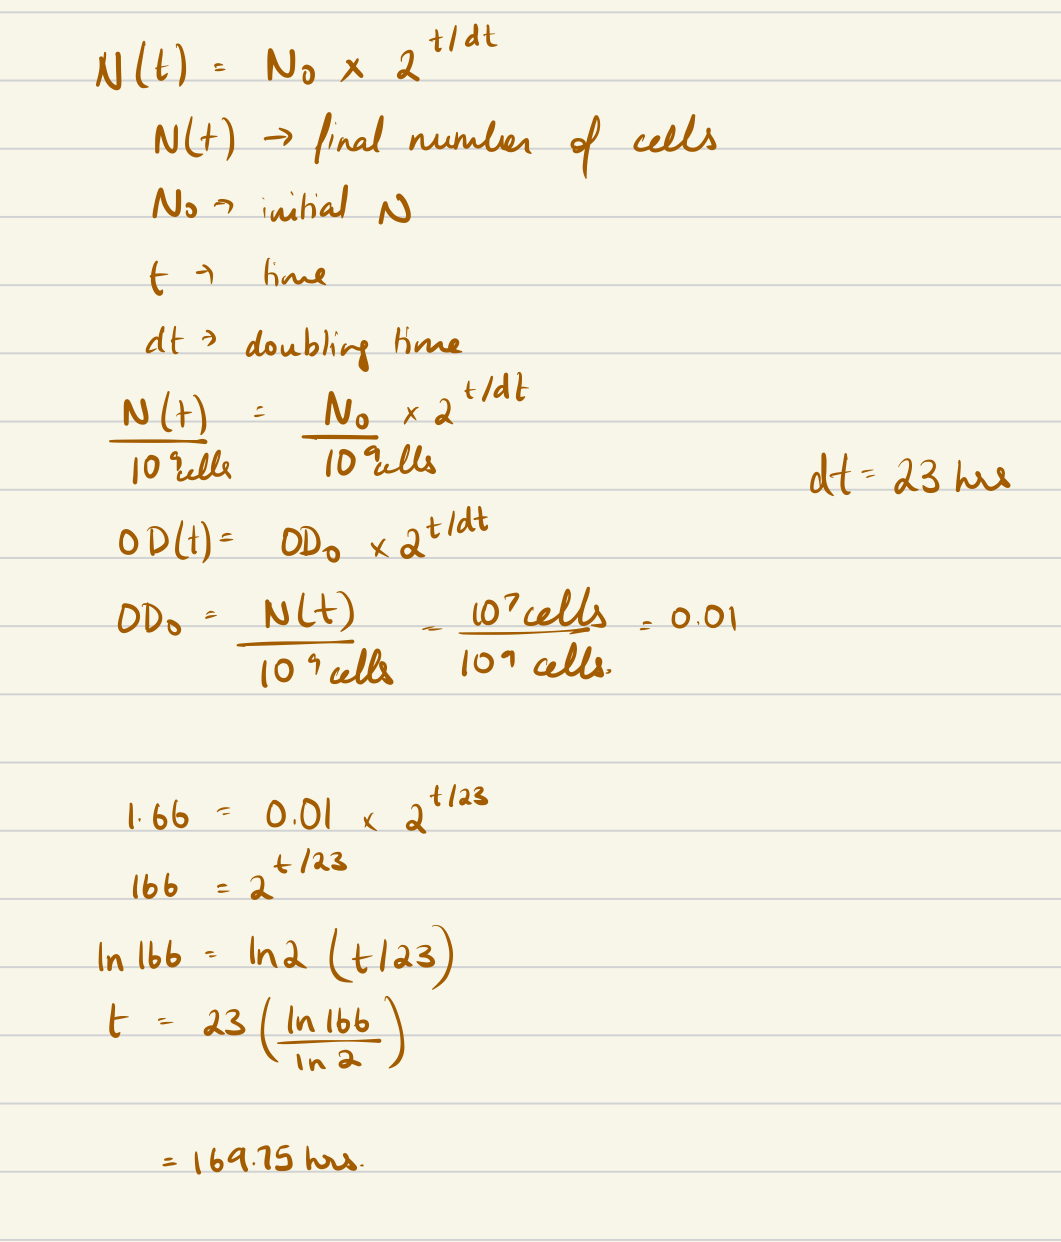 N(t) = N₀ × 2^(t/dt)
N(t) → final number of cells
N₀ → initial N
t → time
dt → doubling time
N(t)/10⁹cells = N₀/10⁹cells × 2^(t/dt)
dt = 23 hrs
OD(t) = OD₀ × 2^(t/dt)
OD₀ = N(t)/10⁹ cells = 10⁷ cells/10⁹ cells. = 0.01
1.66 = 0.01 × 2^(t/23)
166 = 2^(t/23)
ln 166 = ln2 (t/23)
t = 23 (ln 166/ln 2)
= 169.75 hrs.